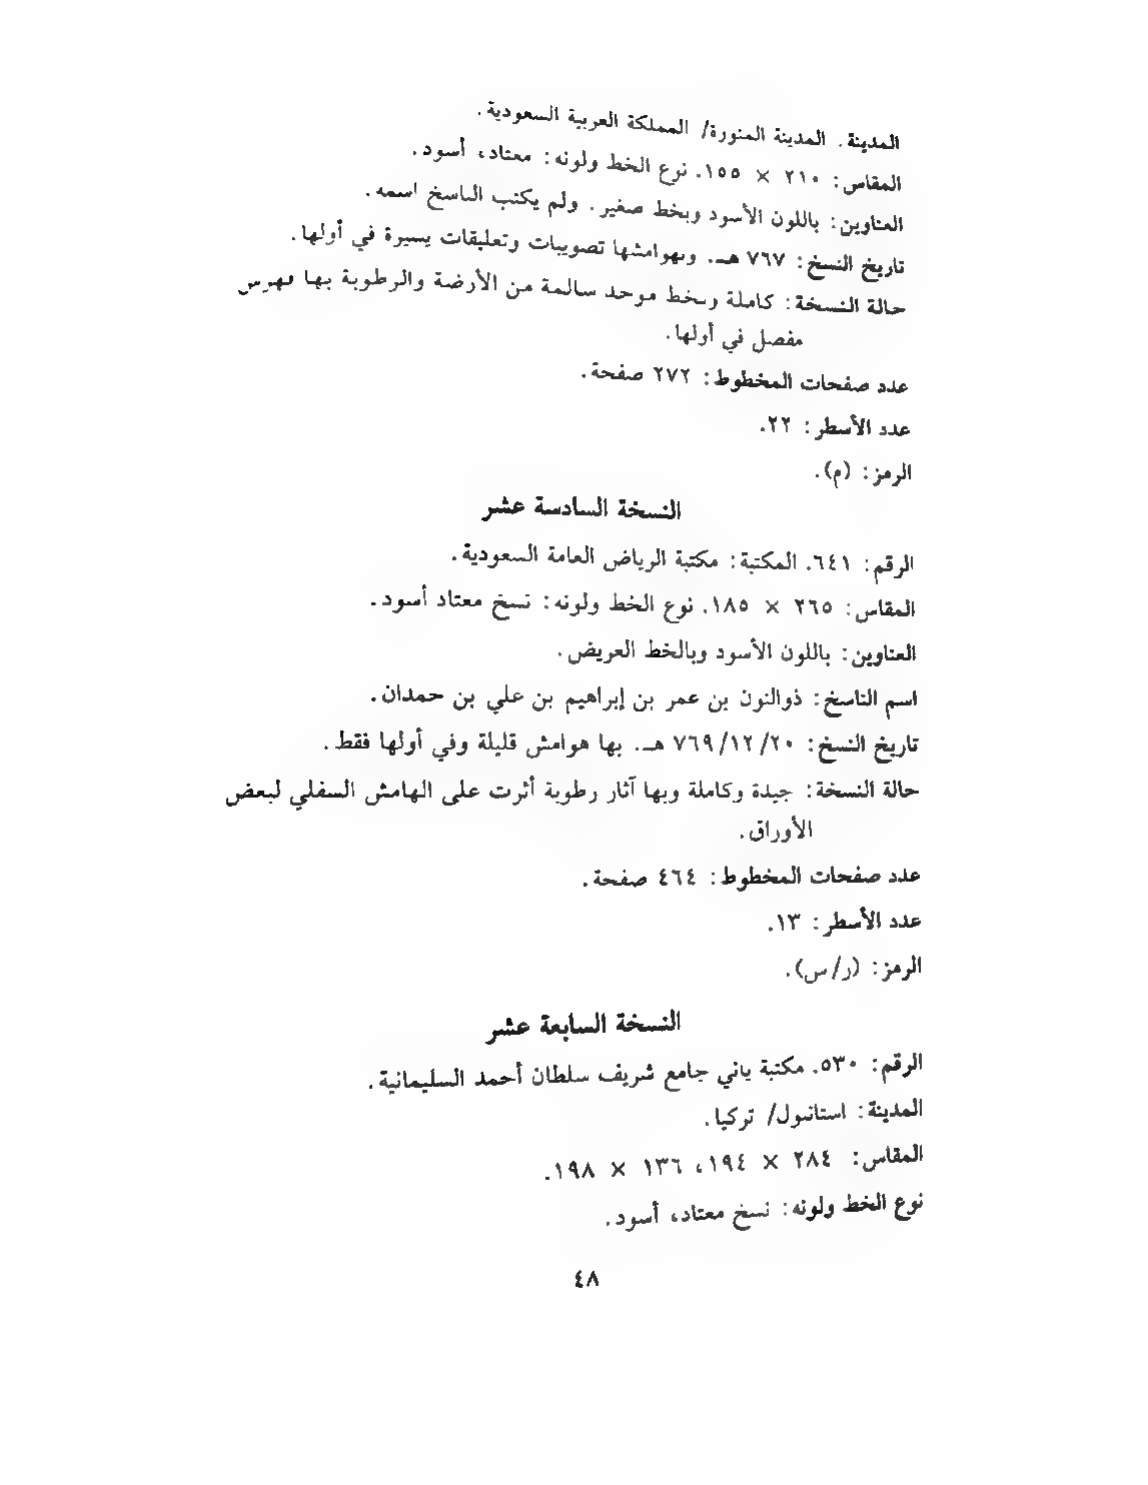 المدينة. المدينة المنورة/ المملكة العربية السعودية.
المقاس: ٢١٠ × ١٥٥. نوع الخط ولونه: معتاد، أسود.
العناوين: باللون الأسود وبخط صغير. ولم يكتب الناسخ اسمه.
تاريخ النسخ: ٧٦٧ هـ. وبهوامشها تصويبات وتعليقات يسيرة في أولها.
حالة النسخة: كاملة وبخط موحد سالمة من الأرضة والرطوبة بها فهرس
مفصل في أولها.
عدد صفحات المخطوط: ٢٧٢ صفحة.
عدد الأسطر: ٢٢.
الرمز: (م).
النسخة السادسة عشر
الرقم: ٦٤١. المكتبة: مكتبة الرياض العامة السعودية.
المقاس: ٢٦٥ × ١٨٥. نوع الخط ولونه: نسخ معتاد أسود.
العناوين: باللون الأسود وبالخط العريض.
اسم الناسخ: ذوالنون بن عمر بن إبراهيم بن علي بن حمدان.
تاريخ النسخ: ٧٦٩/١٢/٢٠ هـ. بها هوامش قليلة وفي أولها فقط.
حالة النسخة: جيدة وكاملة وبها آثار رطوبة أثرت على الهامش السفلي لبعض
الأوراق.
عدد صفحات المخطوط: ٤٦٤ صفحة.
عدد الأسطر: ١٣.
الرمز: (ر/س).
النسخة السابعة عشر
الرقم: ٥٣٠. مكتبة ياني جامع شريف سلطان أحمد السليمانية.
المدينة: استانبول/ تركيا.
المقاس: ٢٨٤ × ١٩٤، ١٣٦ × ١٩٨.
نوع الخط ولونه: نسخ معتاد، أسود.
٤٨